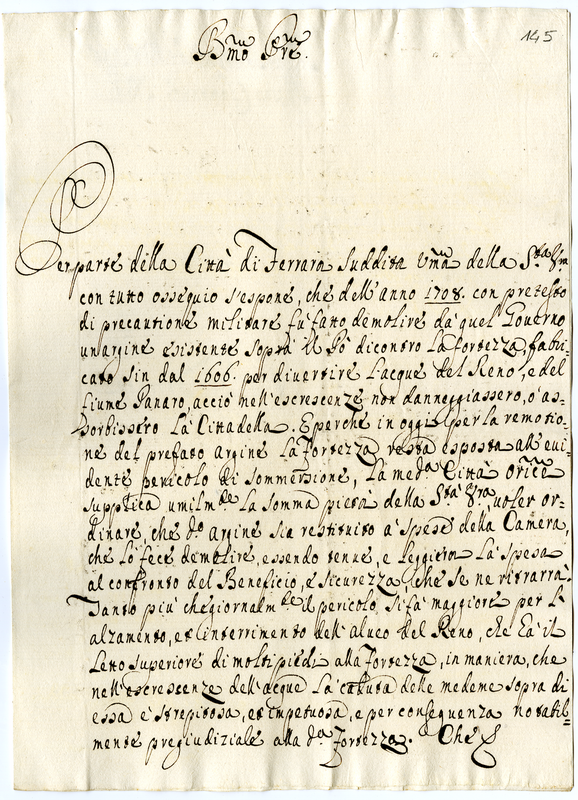 145
Bmo Pre.
Per parte della Città di Ferrara suddita Vma della Sta Vra
con tutto ossequio s'espone, che dell'anno 1708. con pretesto
di precautione militare fù fatto demolire da quel Governo
un'argine esistente sopra il Pò dicontro la fortezza, fabri-
cato sin dal 1606. per divertire l'acque del Reno, e del
fiume Panaro, acciò nell'escrescenze non danneggiassero, o' as-
sorbissero la Cittadella. E perche in oggi per la remotio-
ne del prefato argine la fortezza resta esposta all'evi-
dente pericolo di sommersione, la meda Città orice
supplica umilmte la somma pietà della Sta Vra, voler or-
dinare, che do argine sia restituito à spese della Camera,
che lo fece demolire, essendo tenue, e leggiera la spesa
al confronto del Beneficio, e sicurezza che se ne ritrarrà.
Tanto più che giornalmte il pericolo si fà maggiore per l'
alzamento, et interrimento dell'alveo del Reno, che hà il
Letto superiore di molti piedi alla fortezza, in maniera, che
nell'escrescenze dell'acque la caduta delle medeme sopra di
essa è strepitosa, et impetuosa, e per conseguenza notabil-
mente pregiudiziale alla da Fortezza. Che